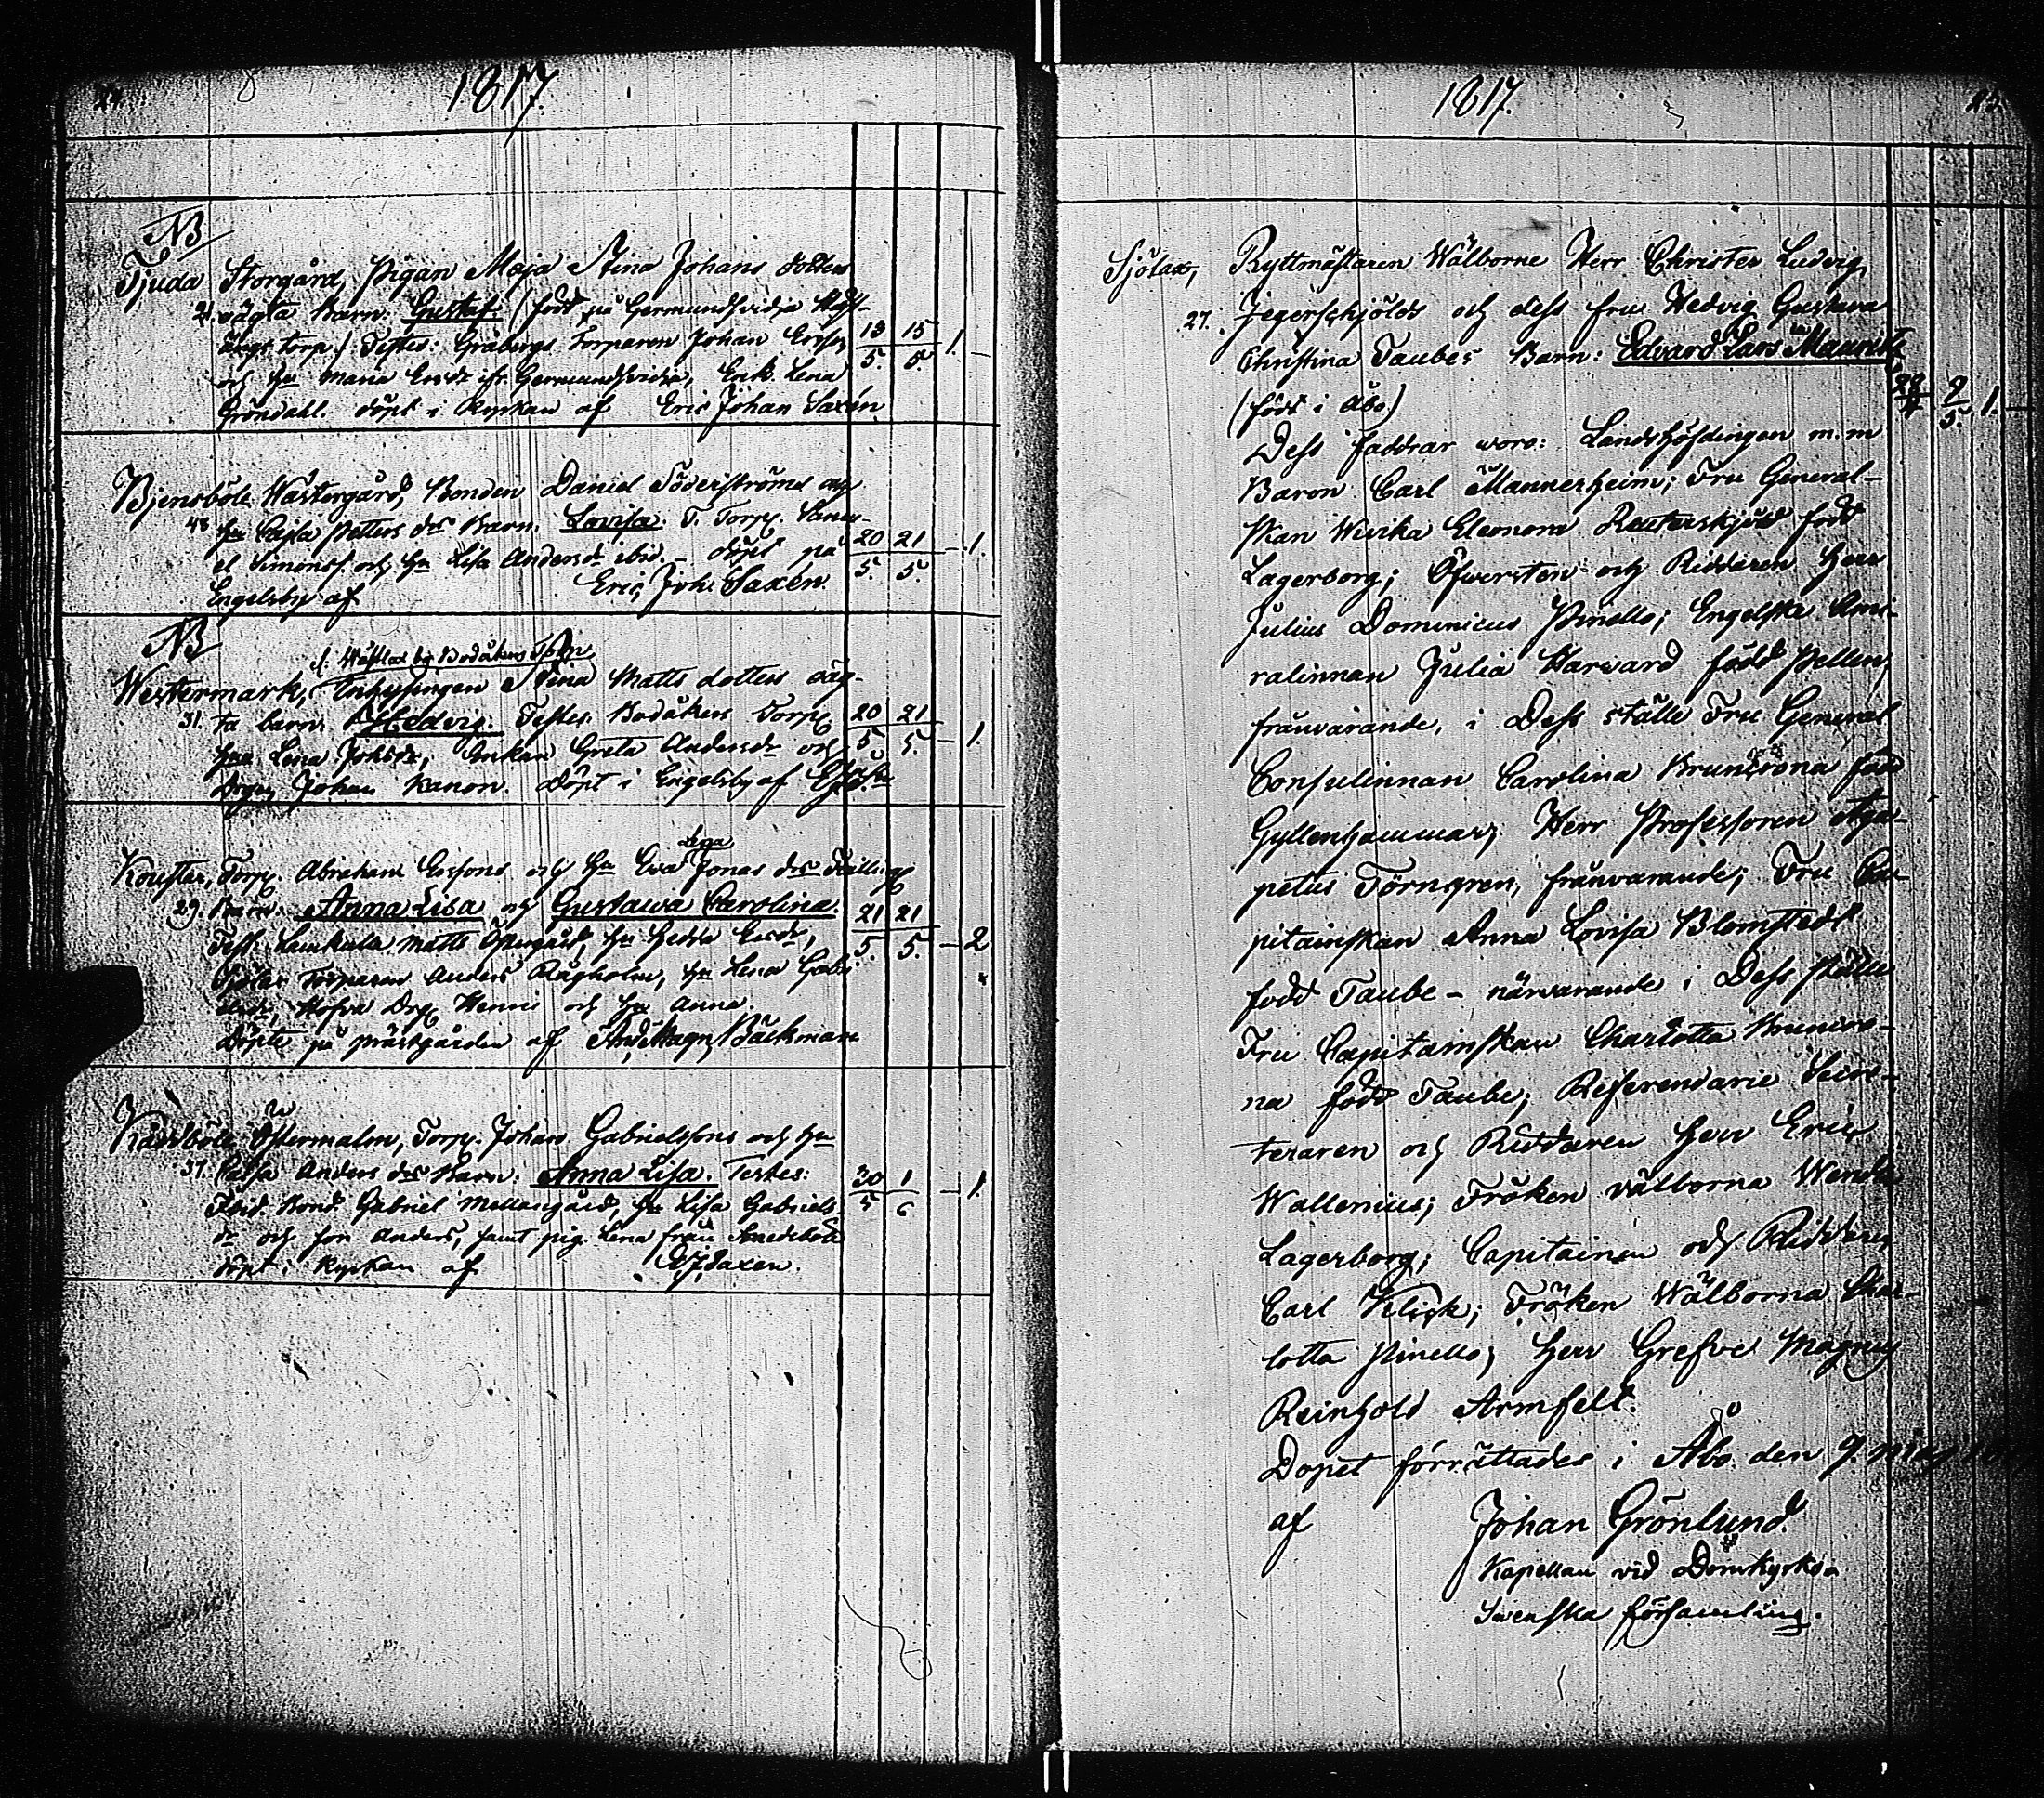 24
1817.
NB
Tjuda Storgård, Pigan Maja Stina Johans dotters
21. oägta Barn: Gustaf. (född på Germundsvidja
torp.) Testes: Gräbergs Torparen Johan Ersson 13/5. 15/5. 1. –
och hu Maria Ersdr ifr. Germundsvidja, Enk. Lena
Gröndahl. döpt i Kyrkan af Eric Johan Saxén
Bjensböle Wästergård, Bonden Daniel Söderströms och
43 hu Cajsa Petters drs Barn. Lovisa. T. Torp. Dani-
el Simonss. och hu Lisa Andersdr ibid. – döpt på 20/5. 21/5. – 1.
Engelsby af Eric Joh. Saxén.
NB
f. Wästlax by Bodåkers Torp
Westermark, Inhysingen Stina Matts dotters oäg-
31. ta barn. Hedvig. Testes. Bodåkers Torp. 20/5 21/5. – 1.
hu Lena Johsdr, Enkan Greta Andersdr och
Drgn Johan Kanon. Döpt i Engelsby af
Lysa
Torp. Abraham Ersons och hu Eva Jonas drs Tvilling
29. Barn: Anna Lisa och Gustawa Carolina. 21/5. 21/5. – 2
Test. Lamkulla Matts Östergård, hu Hedda Ersdr,
Sjölax Torparen Anders Rågholm, hu Lena Gabri
elsdr, Hofva Drg Henric och hu Anna.
Döpte på prästgården af And. Magn. Bäckman
Östermalm, Torp. Johan Gabrielssons och hu
37. Cajsa Anders drs Barn: Anna Lisa. Testes: 30/5 1/6 – 1.
Ibid. Bond. Gabriel Mellangård, hu Lisa Gabriels
dr och son Anders, samt pig. Lena från
döpt i Kyrkan af EJ Saxen.
1817.
25
Sjölax, Ryttmästaren Wälborne Herr Christer Ludvig
27. Jegerschjölds och dess fru Hedvig Gustava
Christina Taubes Barn: Edvard Lars Mauritz
(född i Åbo) 28/4 9/5. 1. –
Dess faddrar woro: Landshöfdingen m.m
Baron Carl Mannerheim; Fru General-
skan Wivika Eleonora Reuterskjöld född
Lagerborg; Öfwersten och Riddaren Herr
Julius Dominicus Pinello; Engelska Ami-
ralinnan Julia Harvard född Pellen
frånvarande, i Dess ställe Fru General
Consulinnan Carolina Bruncrona född
Gyllenhammar; Herr Professoren Aga-
petus Törngren, frånvarande; Fru Ca-
pitainskan Anna Lovisa Blomstedt
född Taube – närvarande i Dess ställe
Fru Capitainskan Charlotta Bruncro-
na född Taube; Referendarie Secre-
teraren och Riddaren Herr Eric
Wallenius; Fröken wälborna Wendla
Lagerborg; Capitainen och Riddaren
Carl Klick; Fröken Wälborna Char-
lotta Pinello; Herr Grefve Magnus
Reinhold Armfelt.
Dopet förrättades i Åbo den 9. Maj
af Johan Grönlund.
Kapellan vid Domkyrko
Swenska församling.